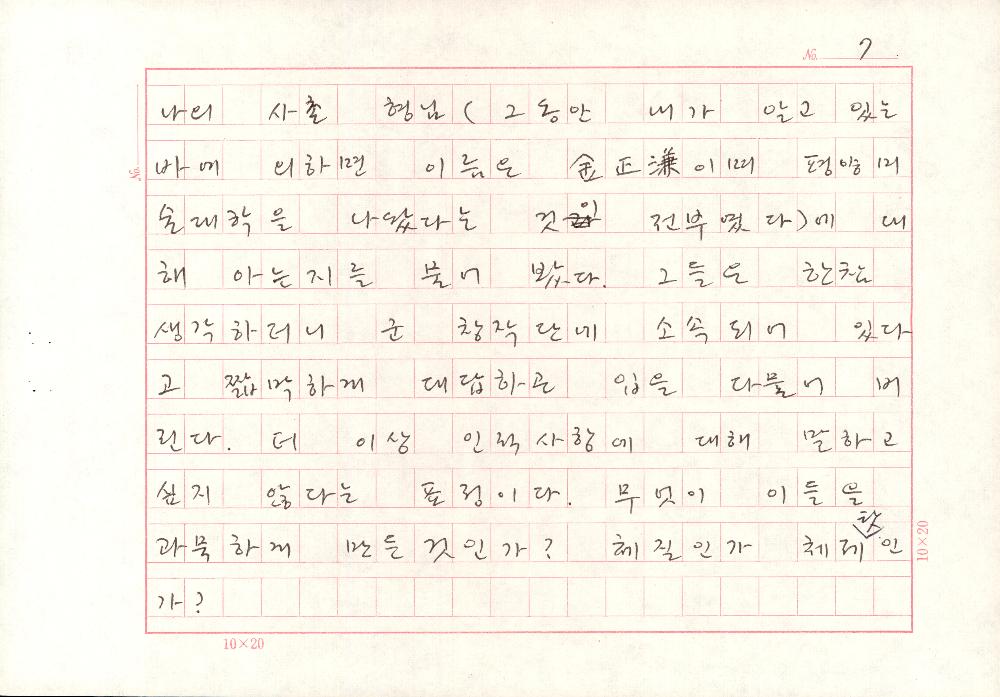 No. 7
나의 사촌 형님(그동안 내가 알고 있는
No.
바에 의하면 이름은 金正謙이며 평양미
술대학을 나왔다는 것이 전부였다)에 대
해 아는지를 물어 봤다. 그들은 한참
생각하더니 군 창작단에 소속되어 있다
고 짧막하게 대답하곤 입을 다물어 버
린다. 더 이상 인적사항에 대해 말하고
싶지 않다는 표정이다. 무엇이 이들을
과묵하게 만든 것인가? 체질인가 체제탓인
가?
10×20
10×20